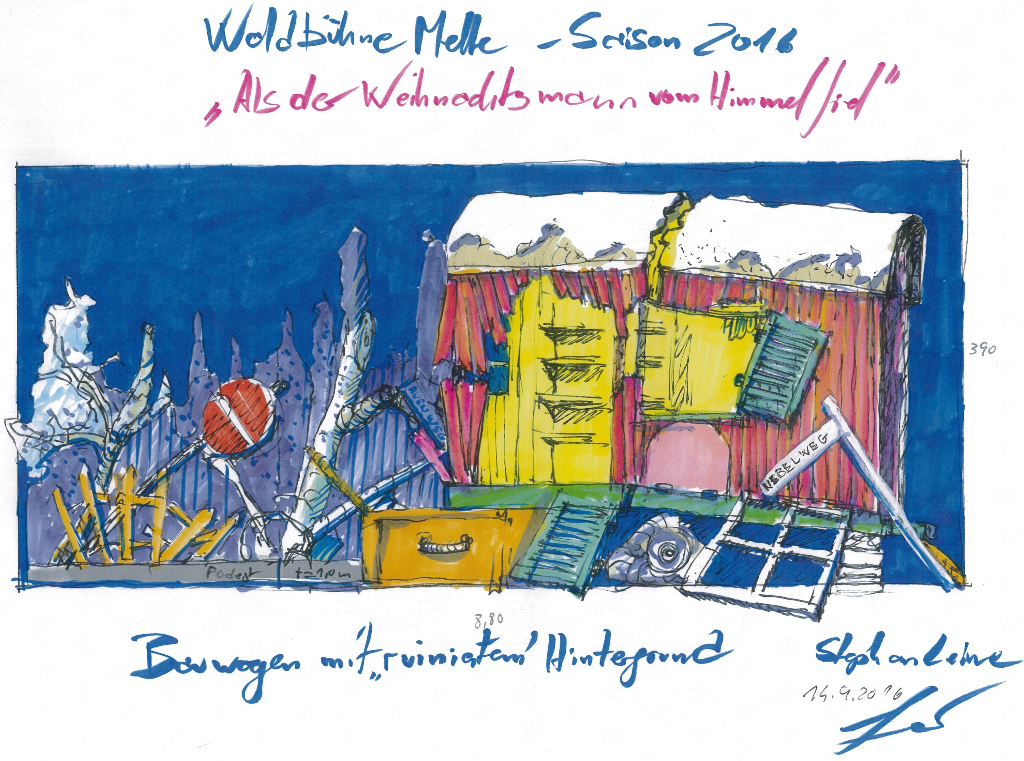 Waldbühne Melle - Saison 2016
„Als der Weihnachtsmann vom Himmel fiel"
390
NEBELWEG
Podest
8,80
Bauwagen mit „ruiniertem" Hintergrund
Stephan Leine
14.9.2016